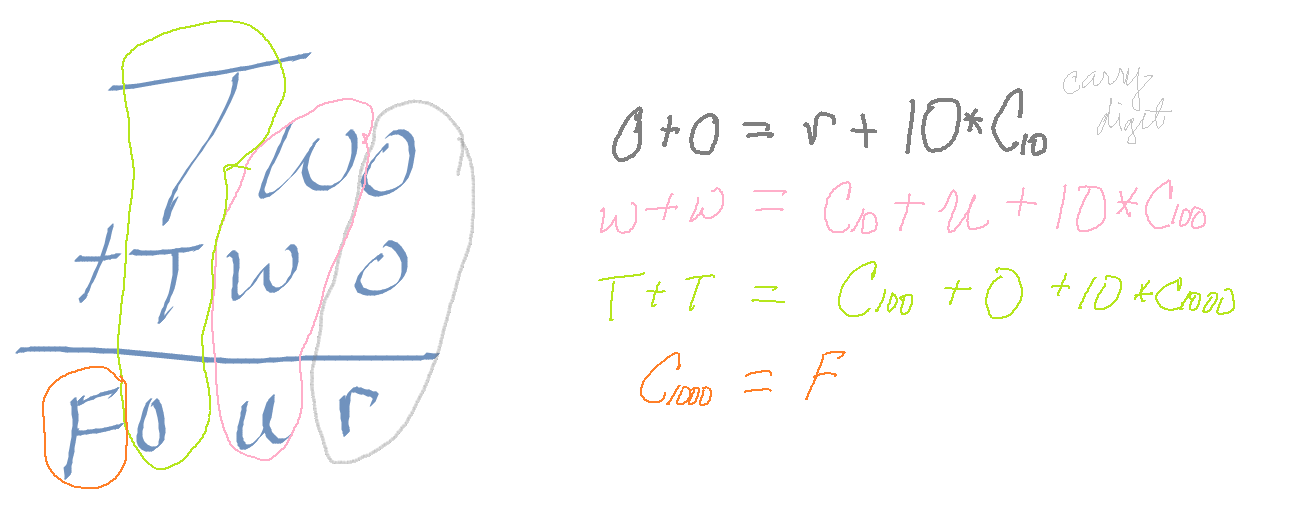 Two
+ Two
Four
O+O = r + 10*C10
carry digit
w+w = C10 + u + 10*C100
T+T = C100 + O + 10*C1000
C1000 = F